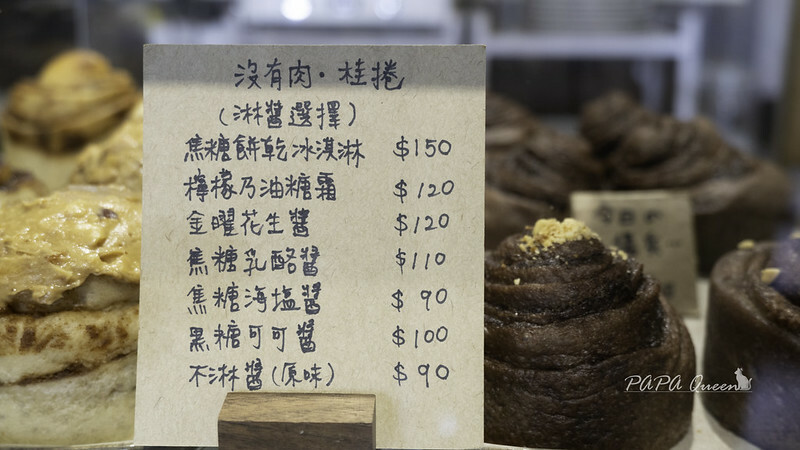 沒有肉・桂捲
（淋醬選擇）
焦糖餅乾冰淇淋 $150
檸檬乃油糖霜 $120
金曜花生醬 $120
焦糖乳酪醬 $110
焦糖海塩醬 $90
黑糖可可醬 $100
不淋醬(原味) $90
今日の
PAPA Queen